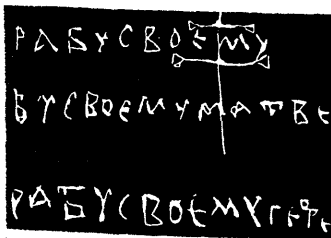 РАБУСВОЕМУ
БУСВОЕМУМАТВЕ
РАБУСВОЕМУ